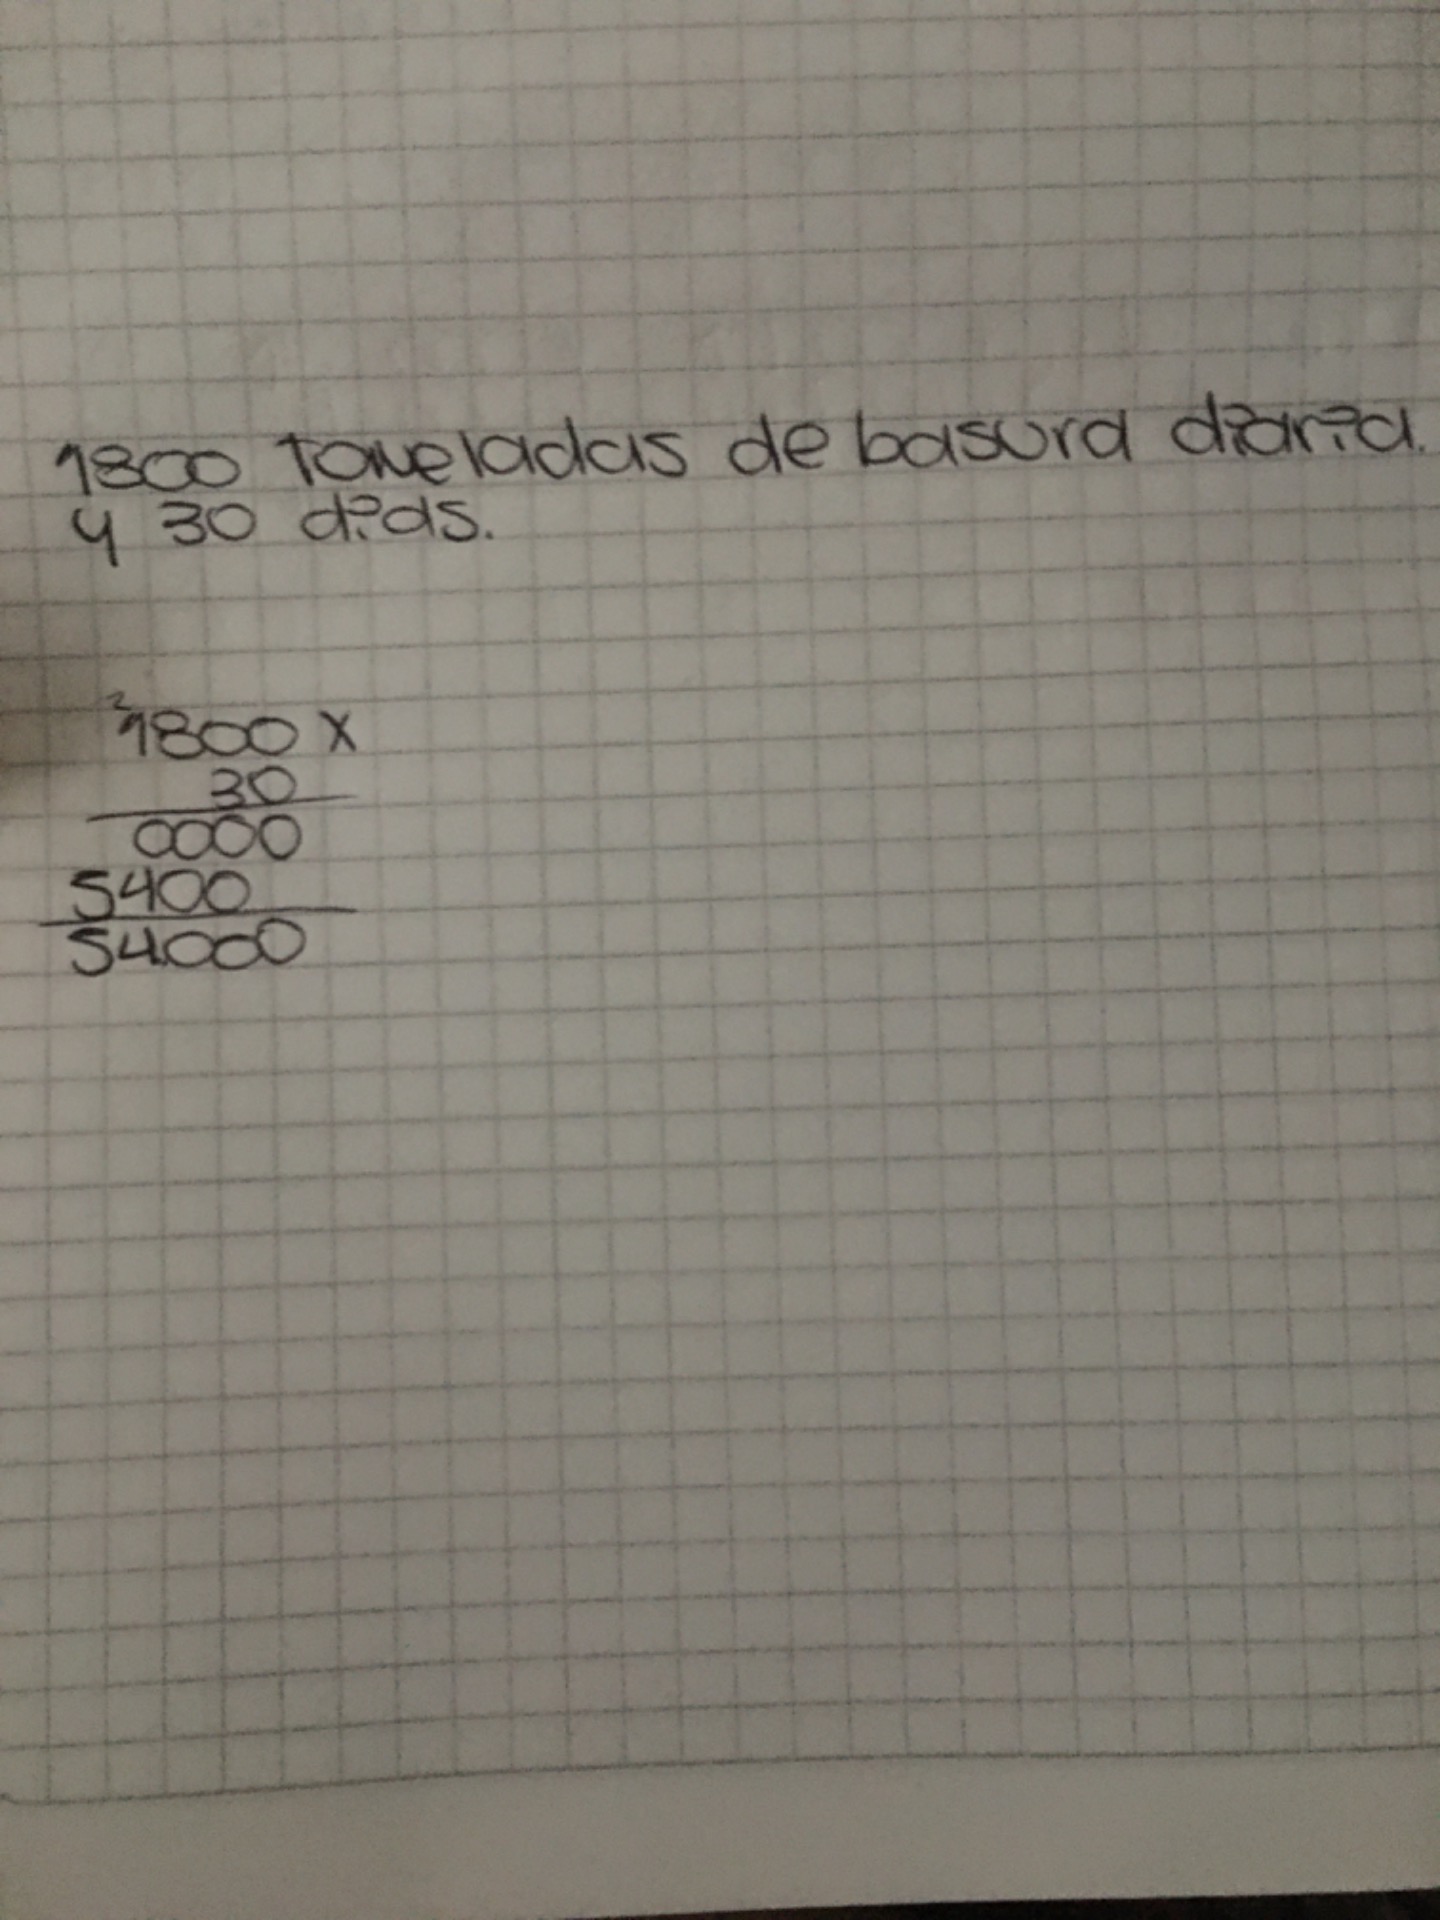 1800 toneladas de basura diaria.
y 30 dias.
2
1800 X
30
0000
5400
54.000